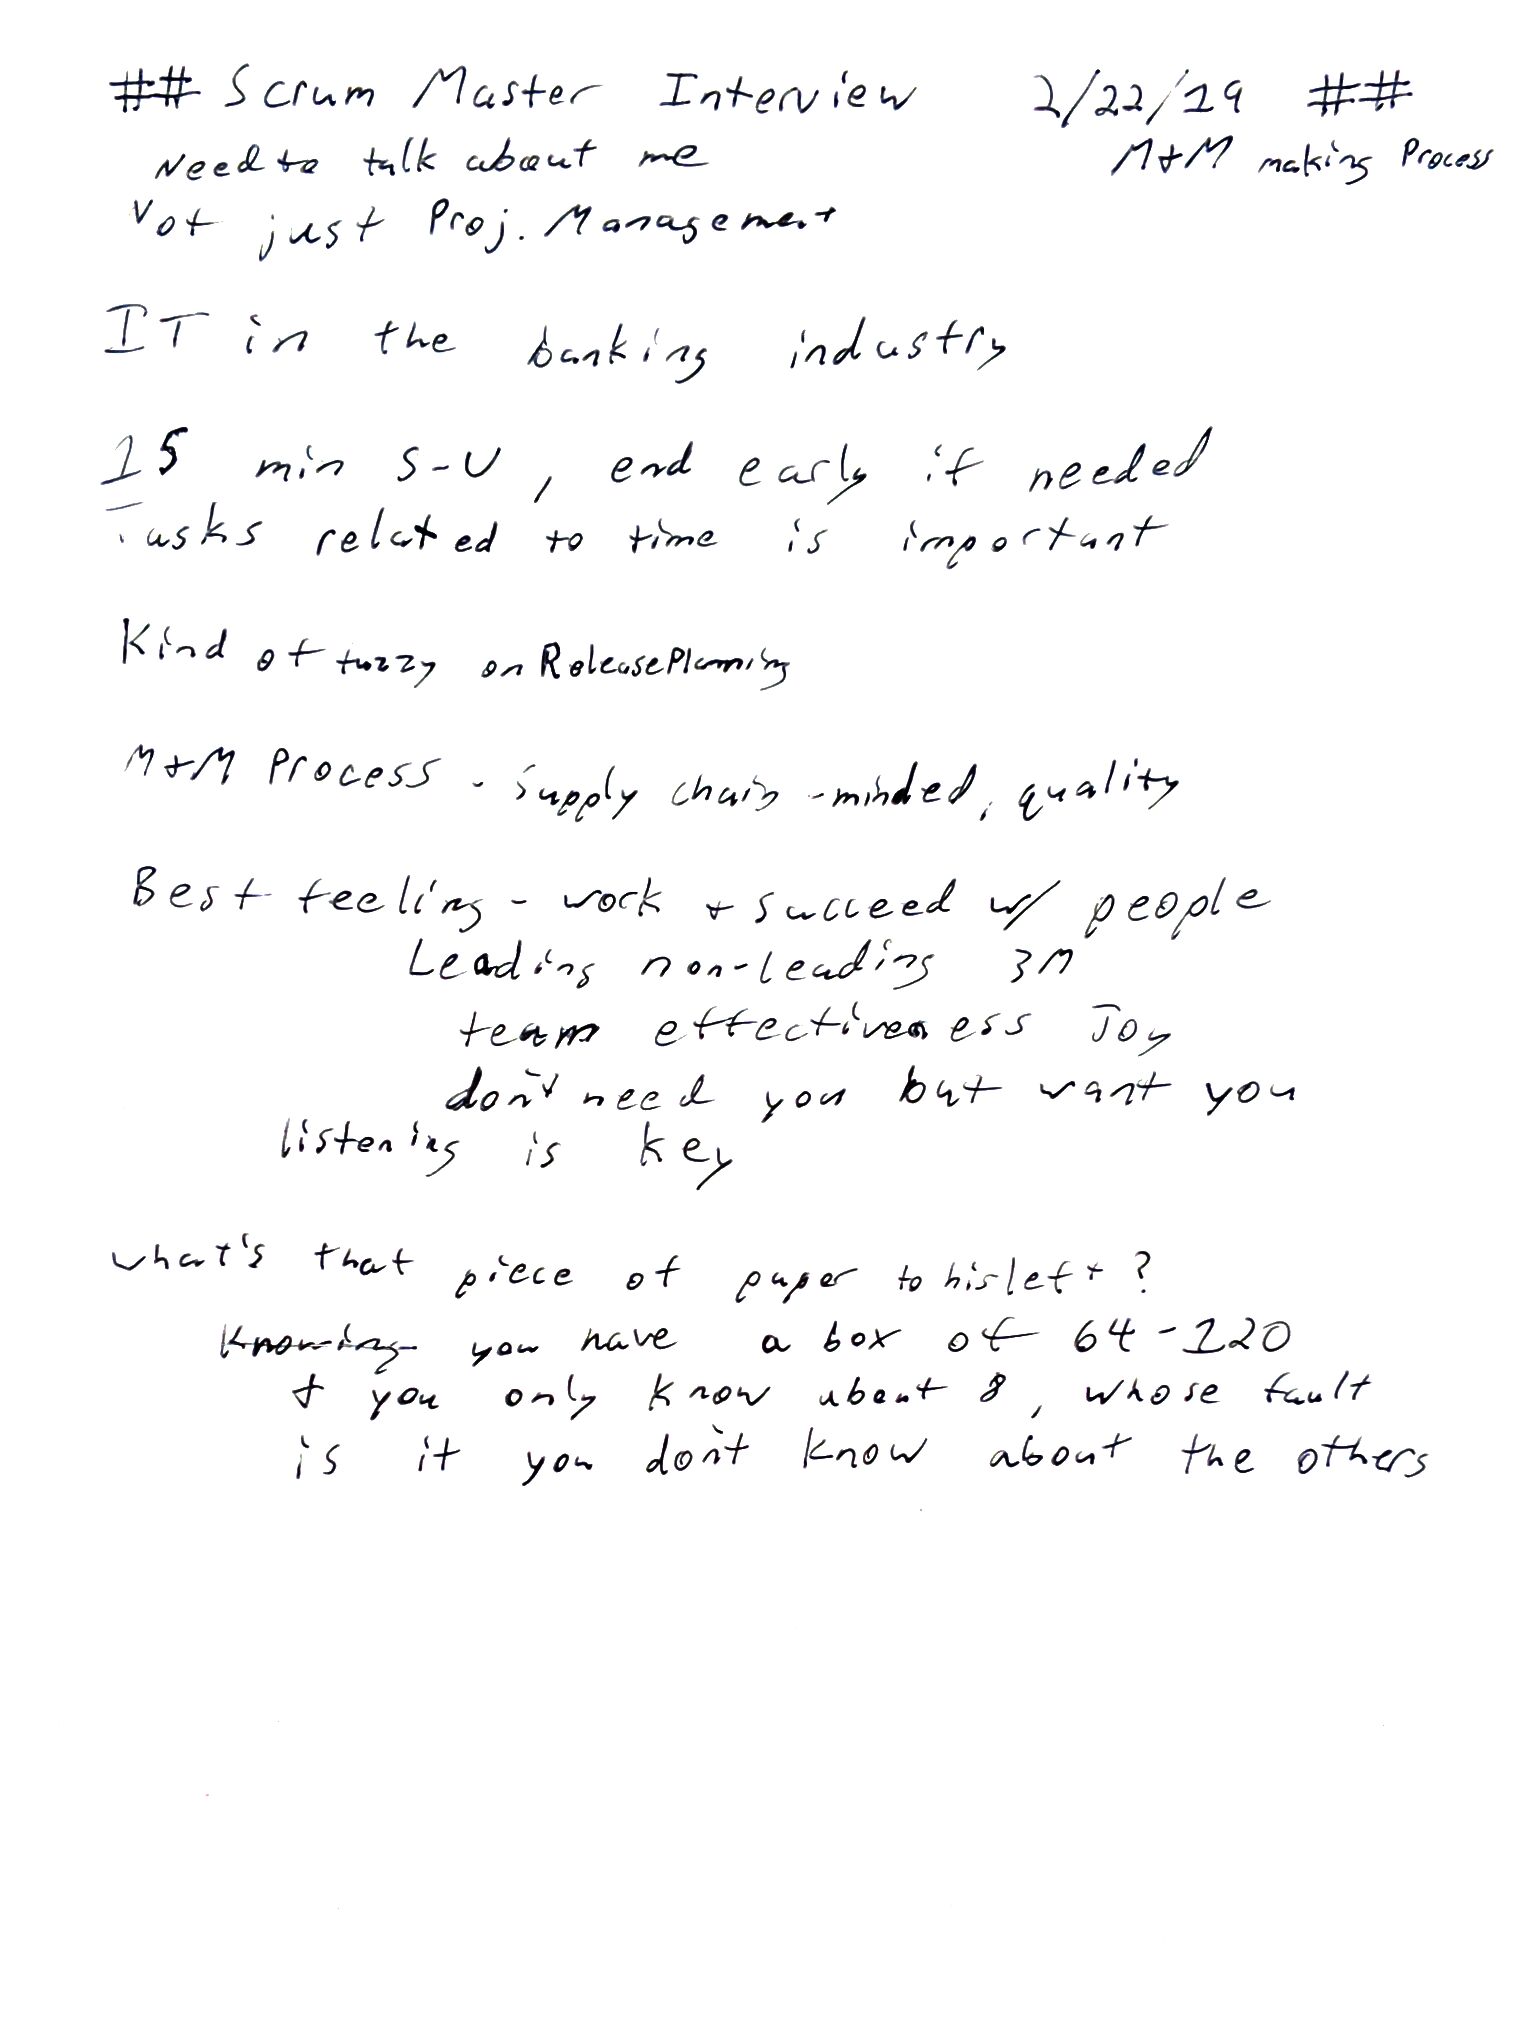 ## Scrum Master Interview 2/22/19 ##
Need to talk about me M+M making Process
Not just Proj. Management
IT in the banking industry
15 min S-U, end early if needed
Tasks related to time is important
Kind of fuzzy on Release Planning
M+M Process - supply chain -minded, quality
Best feeling - work + succeed w/ people
Leading non-leading 3M
team effectiveness Joy
don't need you but want you
listening is key
what's that piece of paper to his left?
Knowing you have a box of 64-120
+ you only know about 8, whose fault
is it you don't know about the others